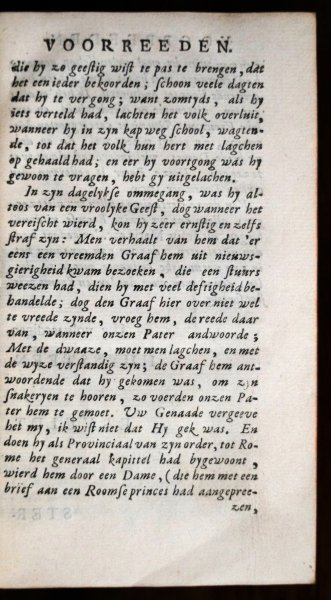 VOORREEDEN.
die hy zo geestig wist te pas te brengen, dat
het een ieder bekoorden; schoon veele dagten
dat hy te ver gong; want zomtyds, als hy
iets verteld had, lachten het volk overluit,
wanneer hy in zyn kap weg school, wagten-
de, tot dat het volk hun hert met lagchen
op gehaald had; en eer hy voortgong was hy
gewoon te vragen, hebt gy uitgelachen.
In zyn dagelykse ommegang, was hy al-
toos van een vroolyke Geest, dog wanneer het
vereischt wierd, kon hy zeer ernstig en zelfs
straf zyn: Men verhaalt van hem dat 'er
eens een vreemden Graaf hem uit nieuws-
gierigheid kwam bezoeken, die een stuurs
weezen had, dien hy met veel deftigheid be-
handelde; dog den Graaf hier over niet wel
te vreede zynde, vroeg hem, de reede daar
van, wanneer onzen Pater andwoorde;
Met de dwaaze, moet men lagchen, en met
de wyze verstandig zyn; de Graaf hem ant-
woordende dat hy gekomen was, om zyn
snakeryen te hooren, zo voerden onzen Pa-
ter hem te gemoet. Uw Genaade vergeeve
het my, ik wist niet dat Hy gek was. En
doen hy als Provinciaal van zyn order, tot Ro-
me het generaal kapittel had bygewoont,
wierd hem door een Dame, (die hem met een
brief aan een Roomse princes had aangepree-
zen,